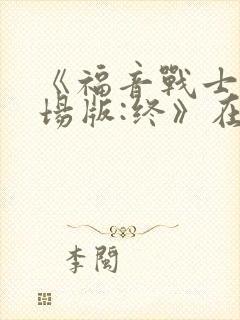 《福音戰士
場版:终》在
李閩